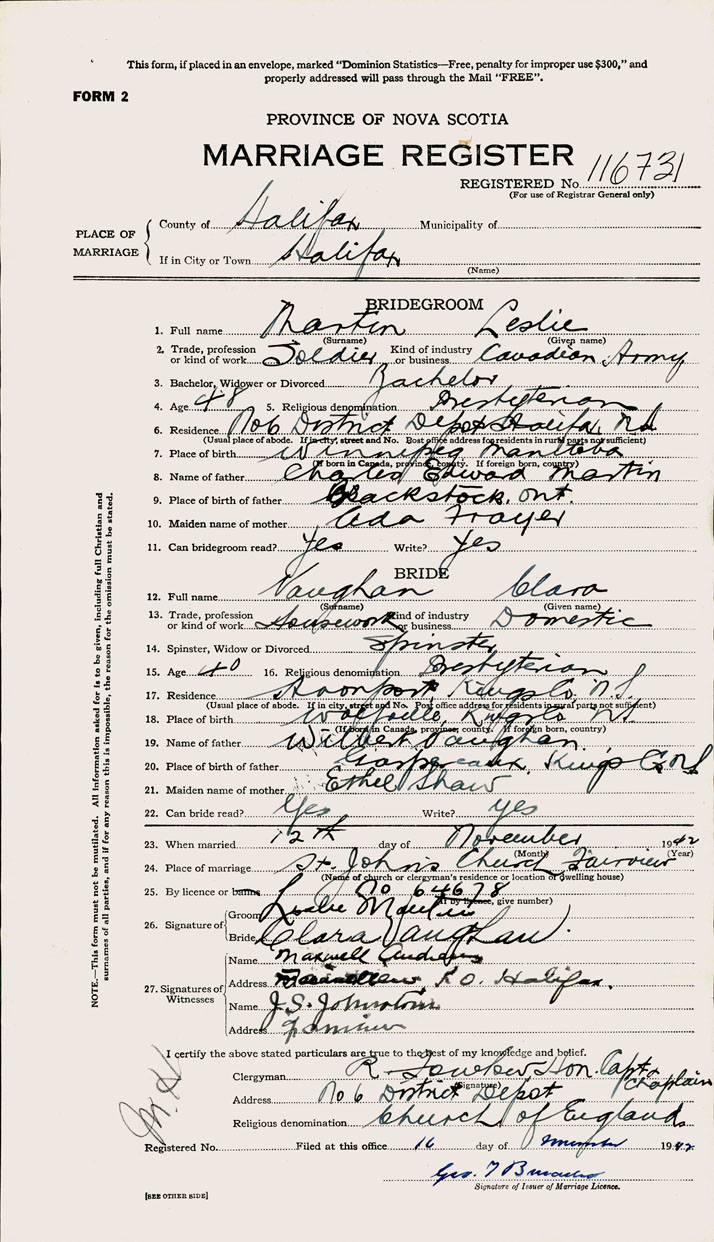 This form, if placed in an envelope, marked "Dominion Statistics—Free, penalty for improper use $300," and
properly addressed will pass through the Mail "FREE".
FORM 2
PROVINCE OF NOVA SCOTIA
MARRIAGE REGISTER
REGISTERED No. 116731
(For use of Registrar General only)
PLACE OF MARRIAGE
County of Halifax Municipality of
If in City or Town Halifax
(Name)
BRIDEGROOM
1. Full name Martin Leslie
(Surname) (Given name)
2. Trade, profession or kind of work Soldier Kind of industry or business Canadian Army
3. Bachelor, Widower or Divorced Bachelor
4. Age 48 5. Religious denomination Presbyterian
6. Residence No 6 District Depot Halifax, N.S.
(Usual place of abode. If in city, street and No. Post office address for residents in rural parts not sufficient)
7. Place of birth Winnipeg Manitoba
(If born in Canada, province, county. If foreign born, country)
8. Name of father Charles Edward Martin
9. Place of birth of father Blackstock, Ont.
10. Maiden name of mother Ada
11. Can bridegroom read? Yes Write? Yes
BRIDE
12. Full name Vaughan Clara
(Surname) (Given name)
13. Trade, profession or kind of work Housework Kind of industry or business Domestic
14. Spinster, Widow or Divorced Spinster
15. Age 40 16. Religious denomination Presbyterian
17. Residence Avonport, Kings Co, N.S.
(Usual place of abode. If in city, street and No. Post office address for residents in rural parts not sufficient)
18. Place of birth Wolfville, Kings Co NS
(If born in Canada, province, county. If foreign born, country)
19. Name of father Wilbert Vaughan
20. Place of birth of father Gaspereaux, Kings Co NS
21. Maiden name of mother Ethel Shaw
22. Can bride read? Yes Write? Yes
23. When married 12th day of November 1942
(Month) (Year)
24. Place of marriage St. John's Church Fairview
(Name of church or clergyman's residence or location of dwelling house)
25. By licence or banns No 64678
(If by licence, give number)
26. Signature of
Groom Leslie Martin
Bride Clara Vaughan
27. Signatures of Witnesses
Name Maxwell Andrews
Address P.O. Halifax.
Name J.S. Johnston
Address
I certify the above stated particulars are true to the best of my knowledge and belief.
Clergyman R. Hon. Capt. Chaplain
(Signature)
Address No 6 District Depot
Religious denomination Church of England
Registered No. Filed at this office 16 day of 1942
Geo. T
Signature of Issuer of Marriage Licence.
[SEE OTHER SIDE]
NOTE.—This form must not be mutilated. All information asked for is to be given, including full Christian and
surnames of all parties, and if for any reason this is impossible, the reason for the omission must be stated.